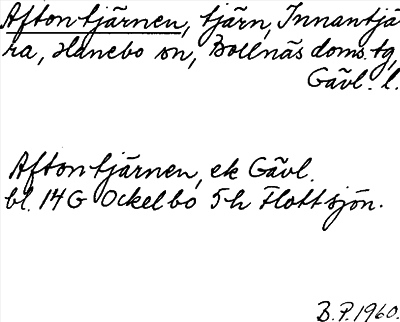 Aftontjärnen, tjärn, Innantjä
ra, Hanebo sn, Bollnäs doms. tg,
Gävl. l.
Aftontjärnen, ek Gävl.
bl. 14G Ockelbo 5h Flottsjön.
B.P. 1960.